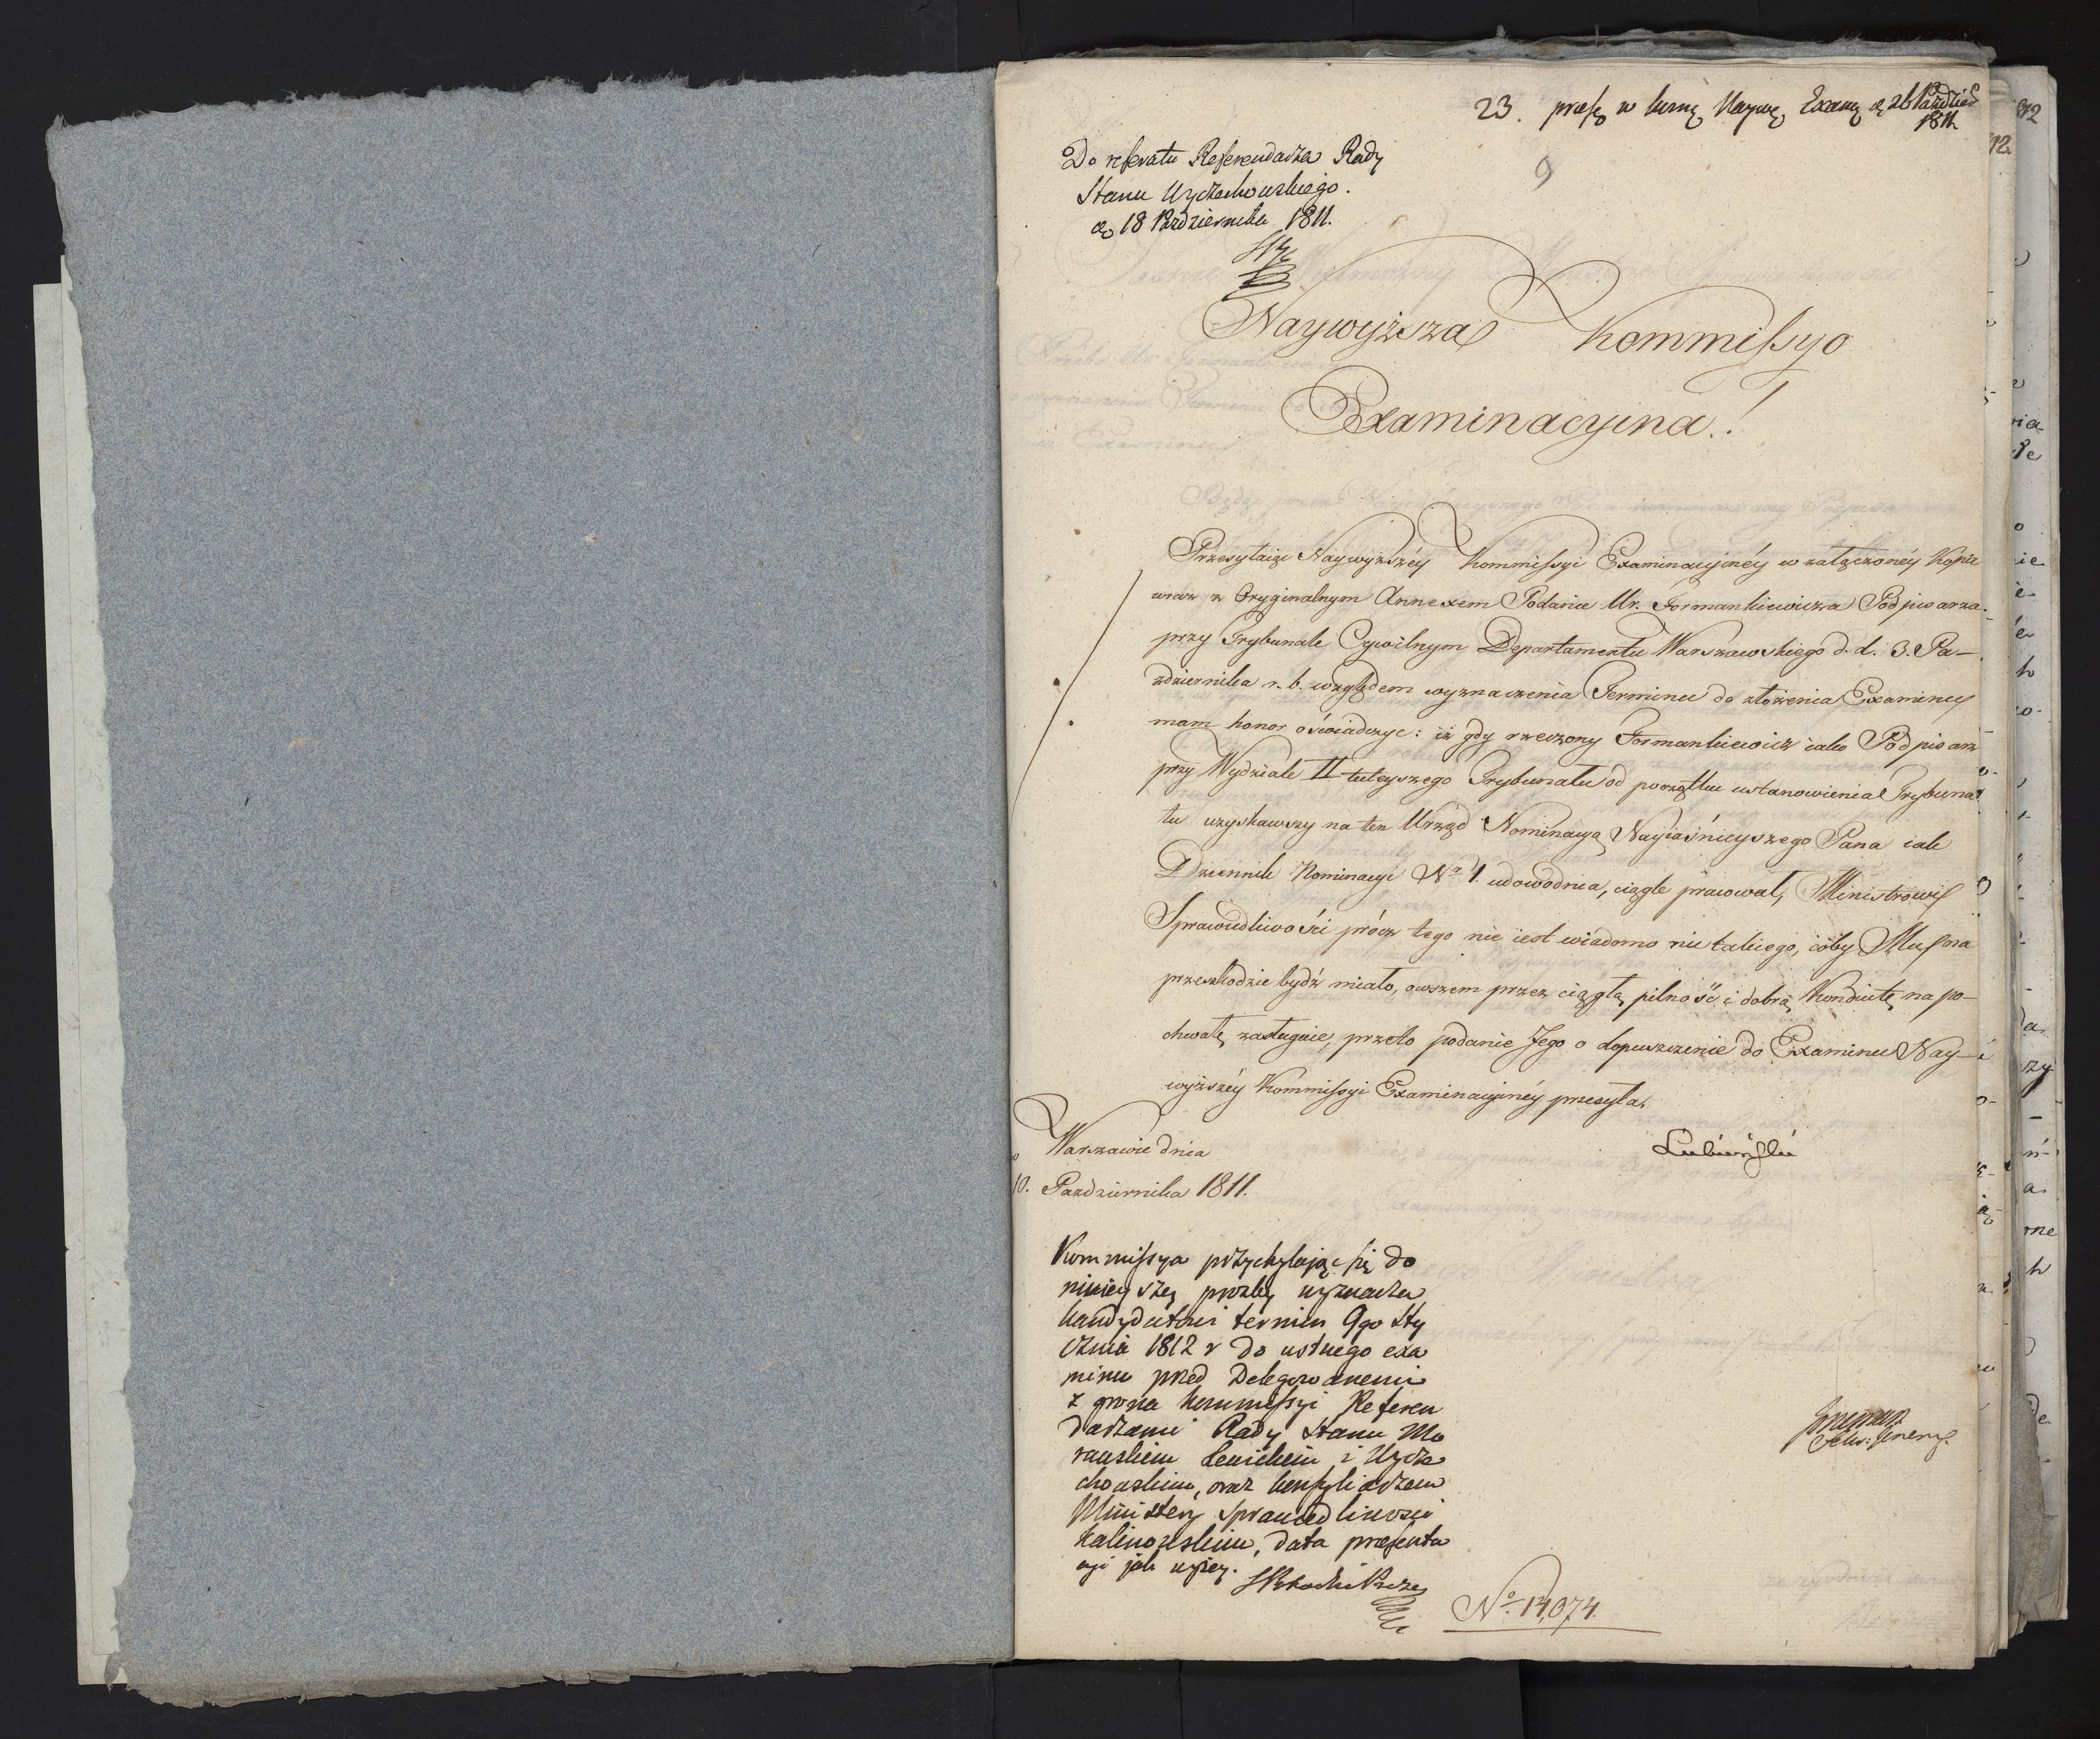 23. præs. w Kom. Naywż. Exam. d. 26 Paździer
1811.
9
Do referatu Referendarza Rady
Stanu Wyczechowskiego.
d. 18 Października 1811.
Naywyższa Kommissyo
Examinacyina!
Przesyłaiąc Naywyższéy Kommissyi Examinacyinéy w załączonéy Kopii
wraz z Oryginalnym Annexem Podanie Ur. Formankiewicza Podpisarza
przy Trybunale Cywilnym Departamentu Warszawskiego d. d. 3. Pa-
ździernika r. b. względem wyznaczenia Terminu do złożenia Examinu
mam honor oświadczyc: iż gdy rzeczony Formankiewicz iako Podpisarz
przy Wydziale II tuteyszego Trybunału od początku ustanowienia Trybuna-
łu uzyskawszy na ten Urząd Nominacyą Nayiaśnieyszego Pana iak
Dziennik Nominacyi No 1. udowodnia, ciągle pracował, Ministrowi
Sprawiedliwości prócz tego nie iest wiadomo nic takiego, coby Mu na
przeszkodzie bydź miało, owszem przez ciągłą pilność i dobrą Konduitę na po-
chwałę zasługuie, przeto podanie Jego o dopuszczenie do Examinu Nay-
wyższéy Kommissyi Examinacyinéy przesyła.
w Warszawie dnia
10. Października 1811.
Lubieński
Kommissya przychylając się do
ninieyszey prozby wyznacza
kandydatowi termin 9go Sty
cznia 1812 r do ustnego exa
minu przed Delegowanemi
z grona kommissyi Referen
darzami Rady Stanu Mo
rawskim Lewickim i Wycze
chowskim, oraz konsyliarzem
Ministery Sprawiedliwosci
Kalinowskim, data præsenta
cyi jak wyżey.
No. 14,074.